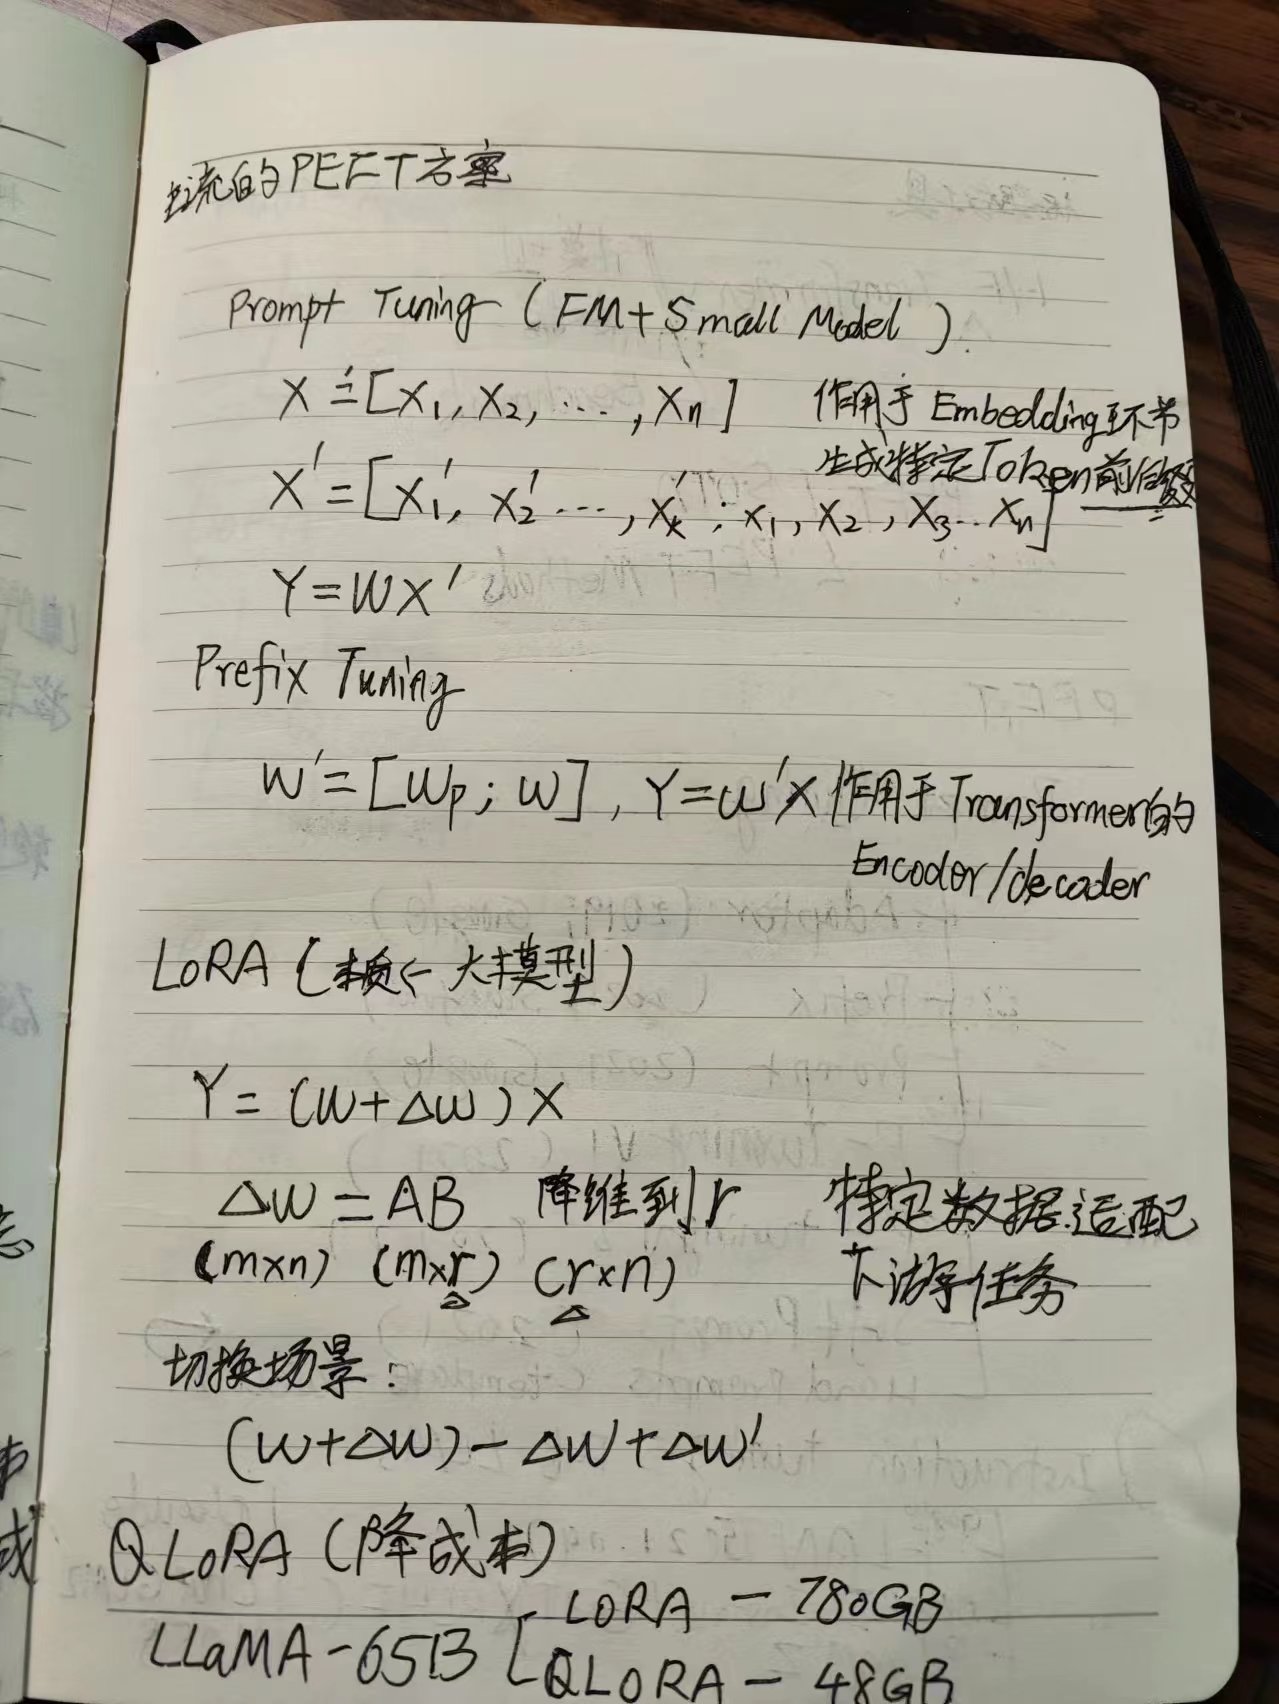 主流的PEFT方案
Prompt Tuning (FM+Small Model)
X = [X1, X2, ..., Xn] 作用于Embedding环节
生成特定Token前缀
X' = [X1', X2' ..., Xk'; x1, X2, X3 .. Xn]
Y=WX'
Prefix Tuning
W' = [Wp; W], Y=W'X 作用于Transformer的
Encoder/decoder
LoRA ( ← 大模型)
Y = (W+ΔW) X
ΔW = AB 降维到r 特定数据适配
(m×n) (m×r) (r×n) 下游任务
切换场景:
(W+ΔW) - ΔW + ΔW'
QLoRA (降成本)
LLaMA-65B [ LoRA - 780GB
QLoRA - 48GB